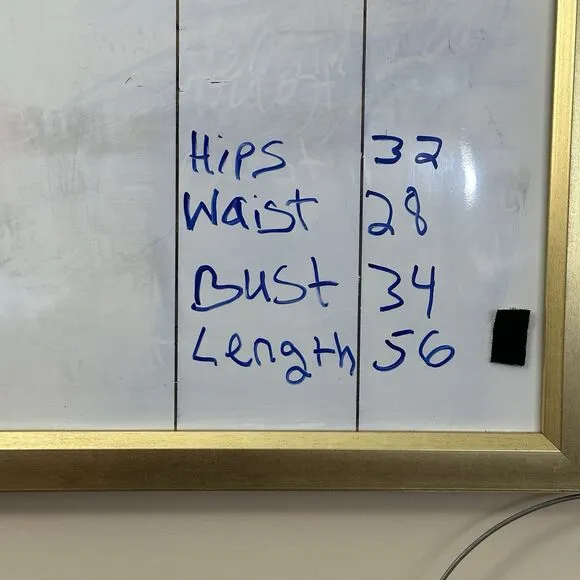 Hips 32
Waist 28
Bust 34
Length 56